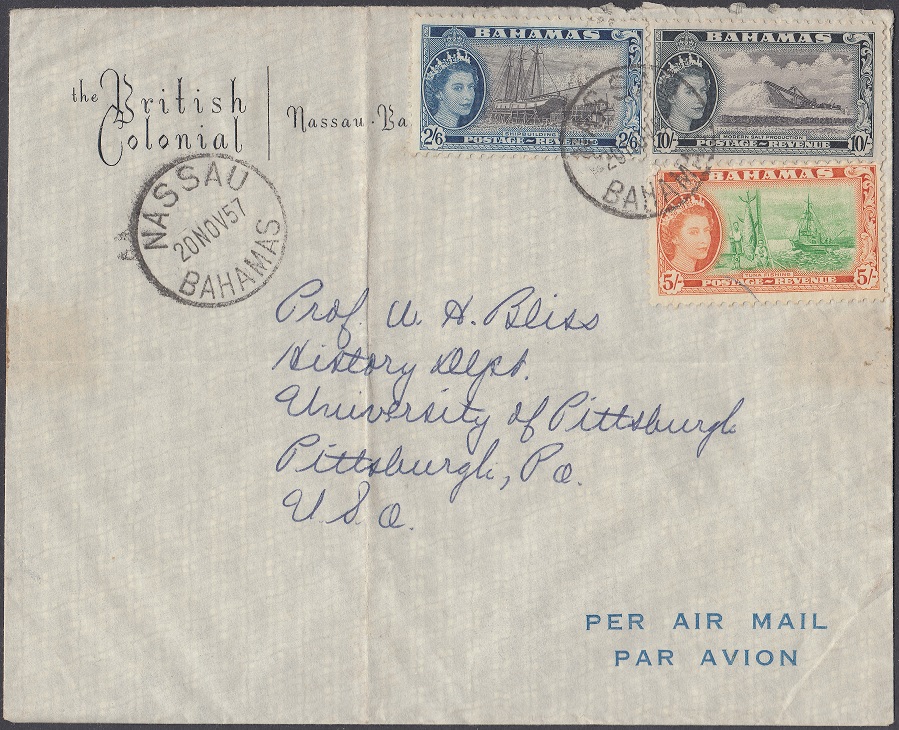 the British
Colonial
Nassau · Ba
BAHAMAS
2/6 2/6
SHIPBUILDING
POSTAGE ~ REVENUE
BAHAMAS
10/- 10/-
MODERN SALT PRODUCTION
POSTAGE ~ REVENUE
BAHAMAS
5/- 5/-
TUNA FISHING
POSTAGE ~ REVENUE
NASSAU
20 NOV 57
BAHAMAS
BAHAMAS
Prof. W. H. Bliss
History Dept.
University of Pittsburgh
Pittsburgh, Pa.
U.S.A.
PER AIR MAIL
PAR AVION